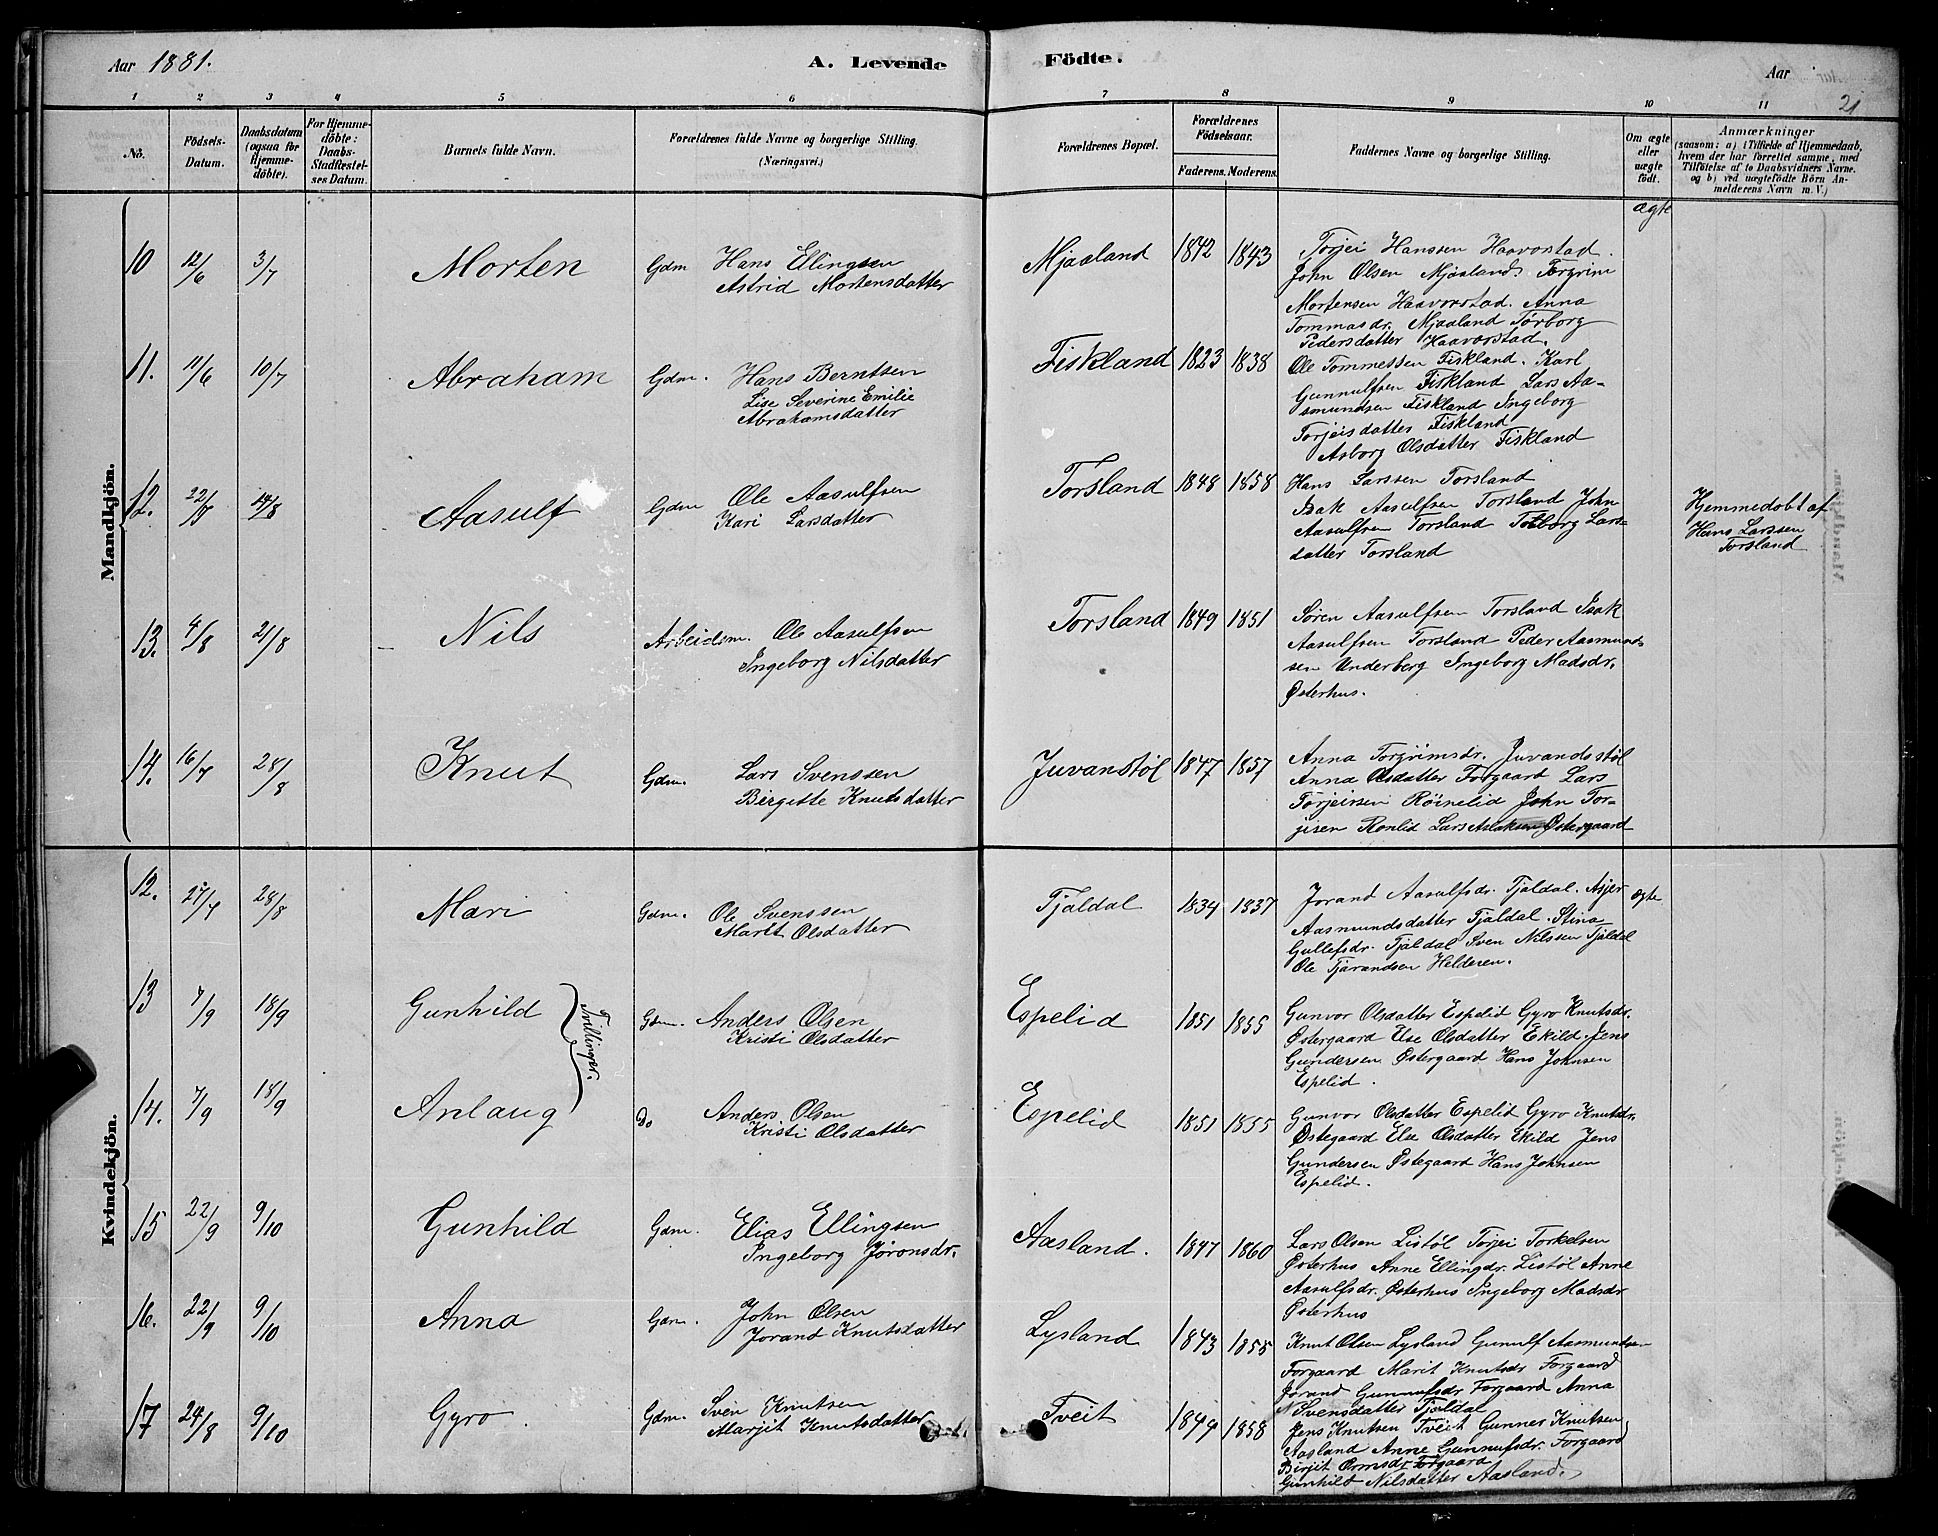 Aar 1881. A. Levende Födte. Aar
21
1 2 3 4 5 6 7 8 9 10 11
Nö. Födsels-Datum. Daabsdatum (ogsaa for Hjemmedöbte). For Hjemmedöbte: Daabs-Stadfæstelses Datum. Barnets fulde Navn. Forældrenes fulde Navne og borgerlige Stilling. (Næringsvei.) Forældrenes Bopæl. Forældrenes Födselsaar. Faderens. Moderens. Faddernes Navne og borgerlige Stilling. Om ægte eller uægte födt. Anmærkninger (saasom: a) i Tilfælde af Hjemmedaab, hvem der har forrettet samme, med Tilföielse af to Daabsvidners Navne, og b) ved uægtefödte Börn Anmelderens Navn m. V.)
Mandkjön.
ægte
10 12/6 3/7 Morten Gdm Hans Ellingsen Mjaaland 1842 1843 Torjei Hanssen Haavorstad.
Astrid Mortensdatter John Olsen Mjaaland. Torgrim
Mortensen Haavorstad. Anna
Tommasdr. Mjaaland Torborg
Pedersdatter Haavorstad.
11. 11/6 10/7 Abraham Gdm. Hans Berntsen Fiskland 1823 1838 Ole Tommessen Fiskland. Karl
Lise Severine Emilie Gunnulfsen Fiskland Lars Aa-
Abrahamsdatter smundsen Fiskland Ingeborg
Torjeisdatter Fiskland
Asborg Olsdatter Fiskland
12. 22/7 14/8 Aasulf Gdm Ole Aasulfsen Torsland 1848 1858 Hans Larssen Torsland
Kari Larsdatter Isak Aasulfsen Torsland John
Aasulfsen Torsland Torborg Lars-
datter Torsland
Hjemmedobt af
Hans Larssen
Torsland
13. 4/8 21/8 Nils Arbeidsm. Ole Aasulfsen Torsland 1849 1851 Søren Aasulfsen Torsland Isak
Ingeborg Nilsdatter Aasulfsen Torsland Peder Aasmund-
sen Underberg Ingeborg Madsdr.
Østerhus.
14. 16/7 28/8 Knut Gdm. Lars Svenssen Juvanstøl 1847 1857 Anna Torgrimsdr. Juvandsstøl
Birgitte Knutsdatter Anna Olsdatter Forgaard Lars
Torjeirsen Röinelid John Tor-
jeisen Ronlid Lars Aslaksen Østergaard
Kvindekjön.
12. 27/7 28/8 Mari Gdm. Ole Svenssen Tjaldal 1834 1837 Jorand Aasulfsdr. Tjaldal. Asjer ægte
Marit Olsdatter Aasmundsdatter Tjaldal. Stina
Gullefsdr. Tjaldal Sven Nilssen Tjaldal
Ole Tjarandsen Helderen.
13 7/9 18/9 Gunhild Tvillinger. Gdm. Anders Olsen Espelid 1851 1855 Gunvor Olsdatter Espelid Gyro Knutsdr.
Kristi Olsdatter Østergaard Else Olsdatter Ekild. Jens
Gundersen Østergaard Hans Johnsen
Espelid.
14. 7/9 18/9 Anlaug do Anders Olsen Espelid 1851 1855 Gunvor Olsdatter Espelid Gyro Knutsdr.
Kristi Olsdatter Østegaard Else Olsdatter Ekild Jens
Gundersen Østegaard Hans Johnsen
Espelid.
15 22/9 9/10 Gunhild Gdm. Elias Ellingsen Aasland. 1847 1860 Lars Olsen Listøl Torjei Torkelsen
Ingeborg Jøronsdr. Østerhus Anne Ellingdr. Listøl Anne
Aasulfsdr. Østerhus Ingeborg Madsdr
Østerhus
16. 22/9 9/10 Anna Gdm. John Olsen Lysland 1843 1855 Knut Olsen Lysland Gunulf Aasmundsen
Jorand Knutsdatter Forgaard Marit Knutsdr Forgaard
Jorand Gunnufsdr Forgaard Anna
Svensdatter Tjaldal
17 24/8 9/10 Gyro. Gdm. Sven Knutsen Tveit 1849 1858 Jens Knutsen Tveit Gunner Knutsen
Marjit Knutsdatter Aasland Anne Gunnufsdr. Forgaard
Birjit Ormsdr Forgaard
Gunhild Nilsdatter Aasland.